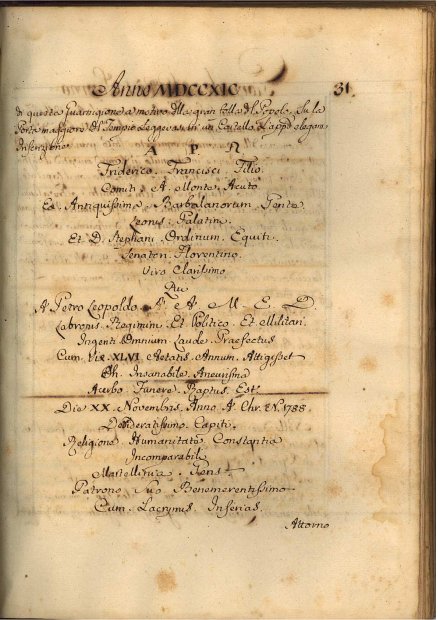 Anno MDCCXIC 31
di questa Guarnigione a motivo della gran folla del Popolo. Su la
Porta maggiore del Tempio Leggevasi in un Cartello L'appo elegan
Inscrizione
A P Ω
Friderico. Francisci. Filio.
Comiti. A. Monte. Acuto
Ex. Antiquissima. Barbolanorum. Gente.
Leonis. Palatin.
Et D. Stephani. Ordinum. Equiti.
Senator. Florentino.
Viro Clarissimo
Qui
A. Petro Leopoldo. A. A. M. E. D.
Labronis. Regimini. Et Politico. Et Militari.
Ingenti Omnium Laude. Praefectus
Cum. Vix XLVI. Aetatis. Annum. Attigisset
Oh. Insanabile. Aneurisma
Acerbo. Funere. Raptus. Est.
Die XX. Novembris. Anno A. Chr. N. 1788.
Desideratissimo. Capiti.
Religione. Humanitate. Constantia
Incomparabili
Martellinia. Gens
Patrono. Suo. Benemerentissimo
Cum. Lacrymis. Inferias.
Attorno